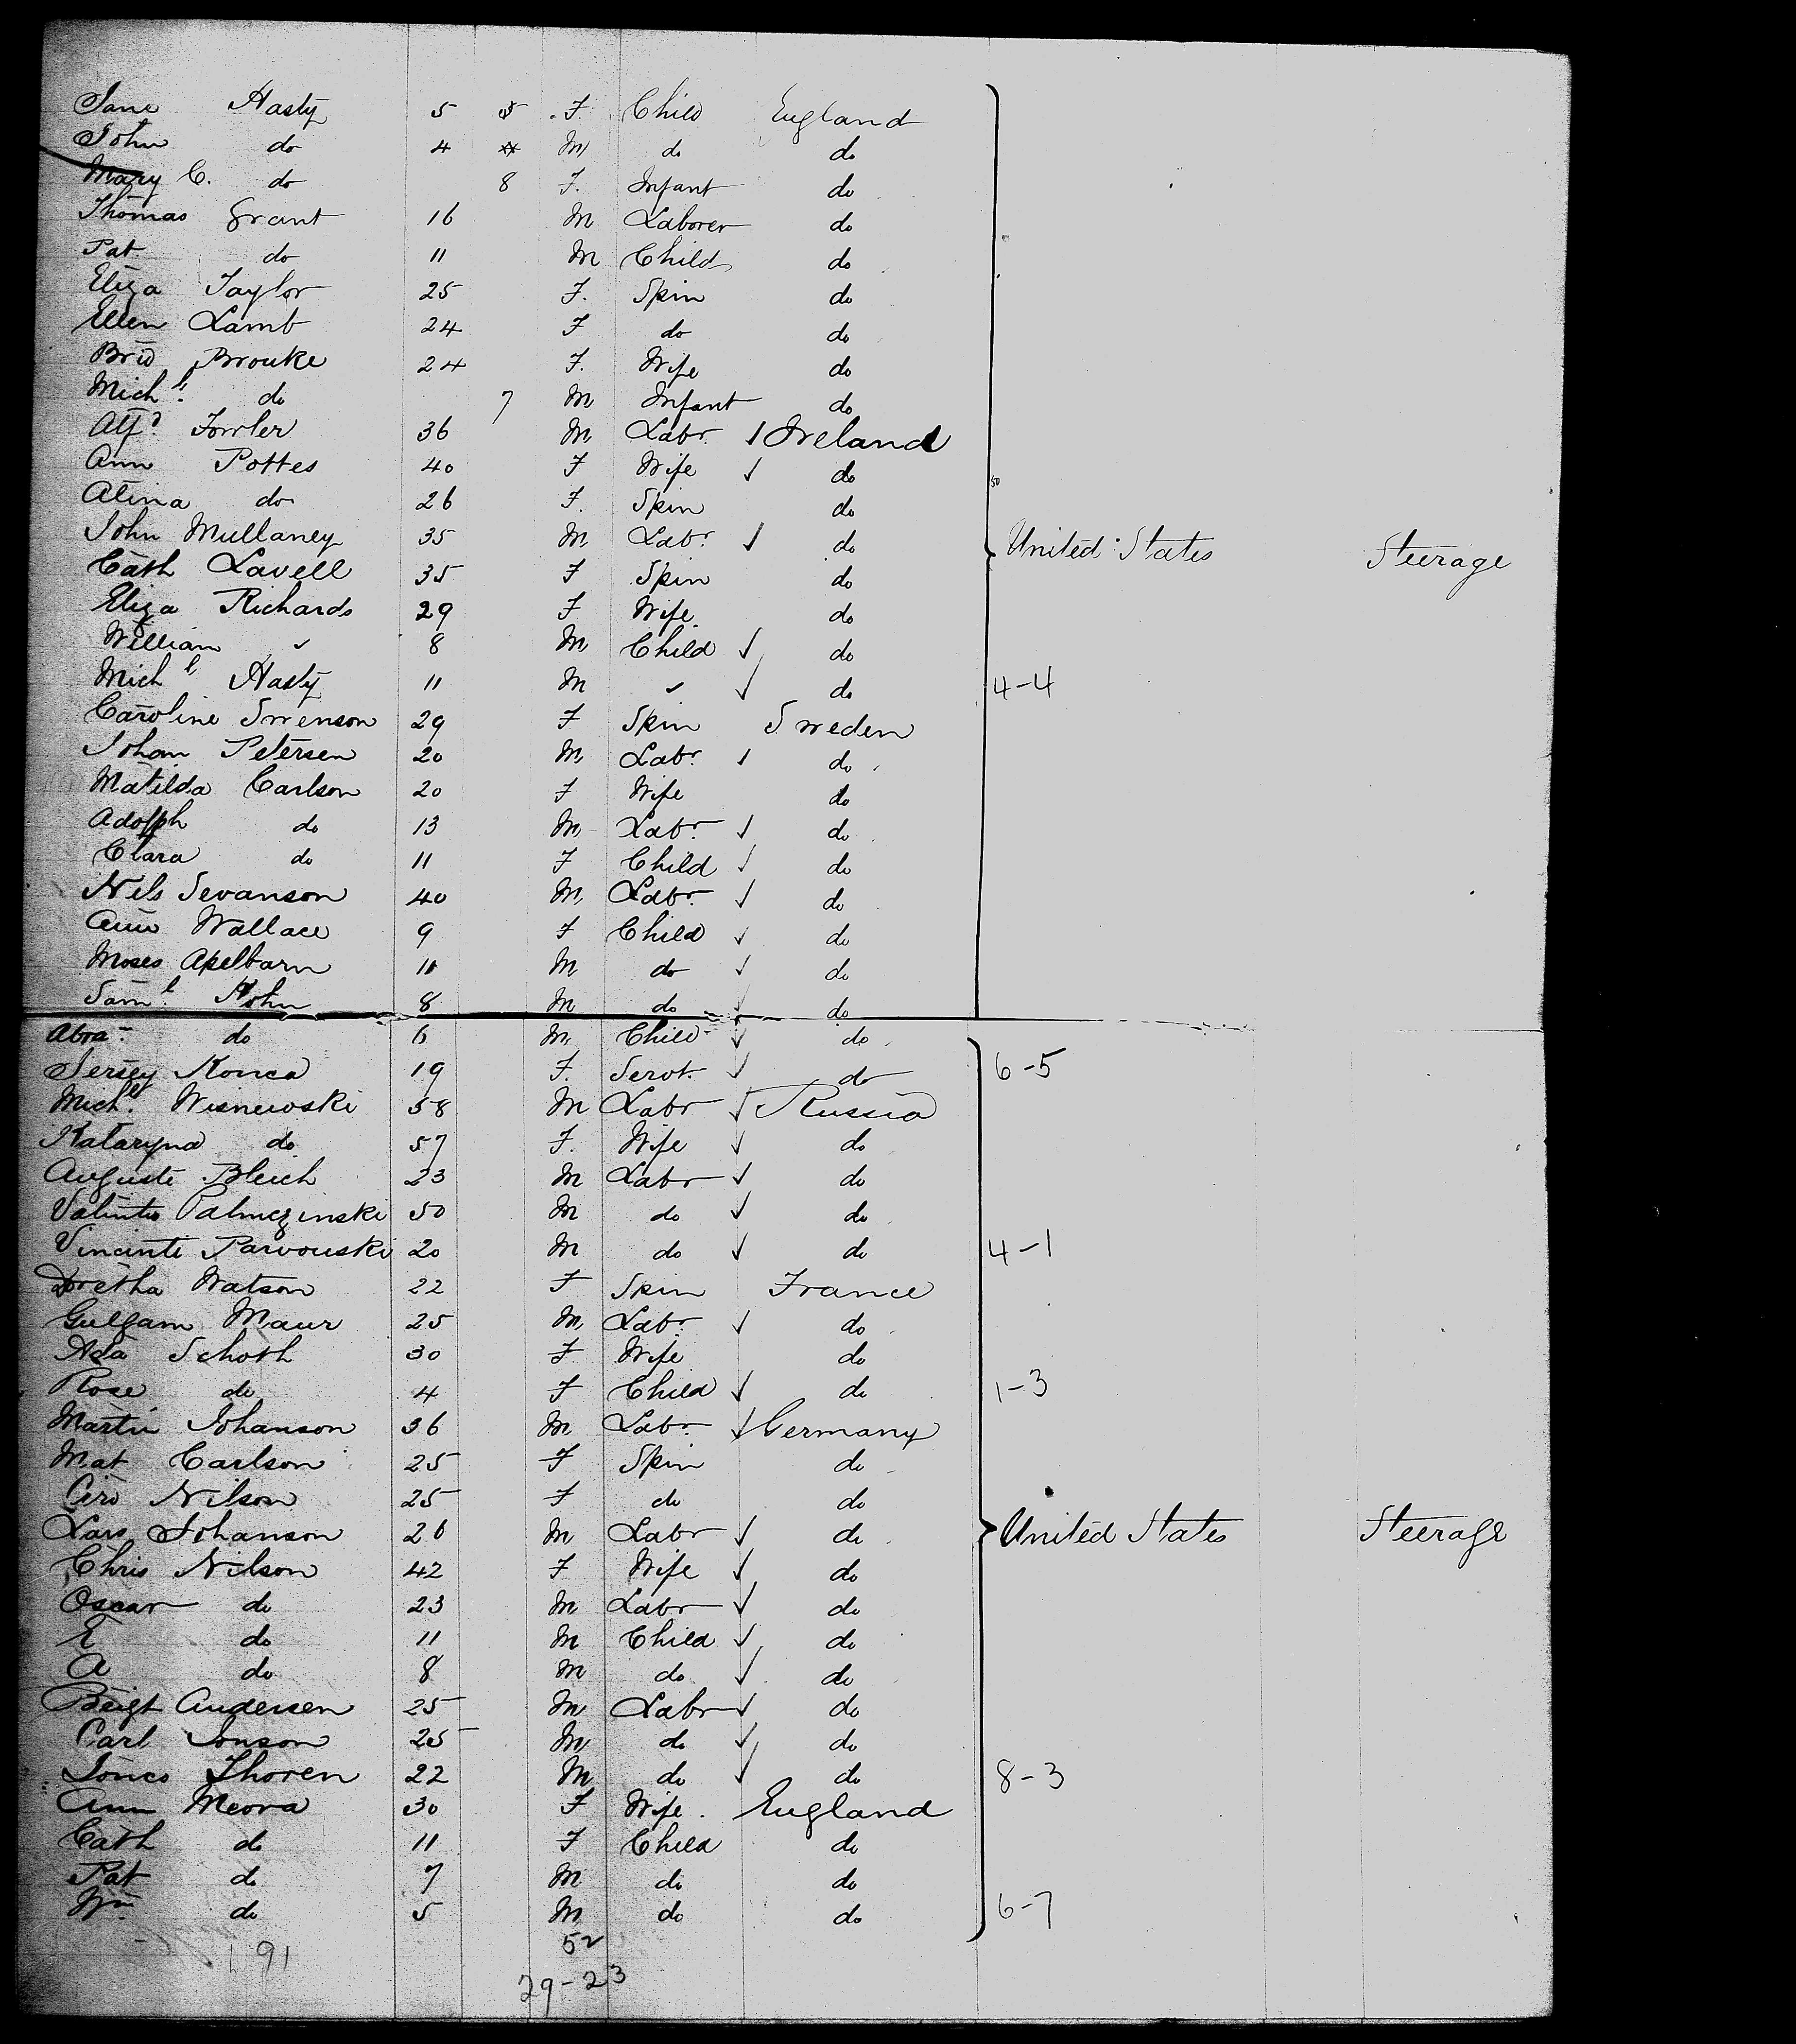 Jane Hasty 5 F. Child England
John do 4 M do do
Mary C. do 8 F. Infant do
Thomas Grant 16 M Laborer do
Pat. do 11 M Child do
Eliza Taylor 25 F. Spin do
Ellen Lamb 24 F do do
Brid Brouke 24 F. Wife do
Mich.l do 7 M Infant do
Alf.d Fowler 36 M Labr. Ireland
Ann Pottes 40 F Wife do
Alina do 26 F. Spin do 50
John Mullaney 35 M Labr. do United States Steerage
Cath Lavell 35 F Spin do
Eliza Richards 29 F Wife do
William " 8 M Child do
Mich.l Hasty 11 M " do 4-4
Caroline Swenson 29 F Spin Sweden
Johan Petersen 20 M Labr. do
Matilda Carlson 20 F Wife do
Adolph do 13 M Labr. do
Clara do 11 F Child do
Nils Sevanson 40 M Labr. do
Ann Wallace 9 F Child do
Moses Apelbarn 11 M do do
Sam.l 8 M do do
Abra- do 6 M Child do
Jersey Konca 19 F. Servt. do 6-5
Mich.l Wisnewski 58 M Labr Russia
Kataryna do 57 F. Wife do
Auguste Bleich 23 M Labr do
Valintio Palmezinski 50 M do do
Vincinti Parvouski 20 M do do 4-1
Dretha Watson 22 F Spin France
Gulgam Maur 25 M Labr. do
Ada Schoth 30 F Wife do
Rose do 4 F Child do 1-3
Martin Johanson 36 M Labr. Germany
Mat Carlson 25 F Spin do
Nilson 25 F do do
Lars Johanson 26 M Labr do United States Steerage
Chris Nilson 42 F Wife do
Oscar do 23 M Labr do
E do 11 M Child do
A do 8 M do do
Beigt Andersen 25 M Labr do
Carl Jonson 25 M do do
Thoren 22 M do do 8-3
Ann Meora 30 F Wife. England
Cath do 11 F Child do
Pat do 7 M do do
Wm. do 5 M do do 6-7
52
191
29-23